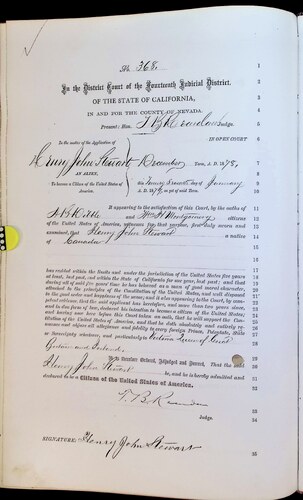 No. 368. 1
In the District Court of the Fourteenth Judicial District. 2
OF THE STATE OF CALIFORNIA, 3
IN AND FOR THE COUNTY OF NEVADA. 4
Present: Hon. T B Reardan Judge. 5
IN OPEN COURT 6
In the matter of the Application of
Henry John Stewart December Term, A. D. 1878, 7
AN ALIEN, 8
To become a Citizen of the United States of this Twenty Seventh day of January 9
America. A. D. 1879, as yet of said Term. 10
It appearing to the satisfaction of this Court, by the oaths of 11
and Wm H Montgomery citizens 12
of the United States of America, witnesses for that purpose, first duly sworn and 13
examined, that Henry John Stewart a native 14
of Canada 15
has resided within the limits and under the jurisdiction of the United States five years
at least, last past, and within the State of California for one year, last past; and that
during all of said five years' time he has behaved as a man of good moral character,
attached to the principles of the Constitution of the United States, and well disposed
to the good order and happiness of the same; and it also appearing to the Court, by com-
petent evidence, that the said applicant has heretofore, and more than two years since,
and in due form of law, declared his intention to become a citizen of the United States,
and having now here before this Court taken an oath, that he will support the Cons-
titution of the United States of America, and that he doth absolutely and entirely re-
nounce and abjure all allegiance and fidelity to every foreign Prince, Potentate, State
or Sovereignty whatever, and particularly to Victoria Queen of Great
Britain and Ireland
It is therefore Ordered, Adjudged and Decreed, That the said
Henry John Stewart be, and he is hereby admitted and
declared to be a Citizen of the United States of America.
T. B. Reardan
Judge. 24
SIGNATURE: Henry John Stewart
26